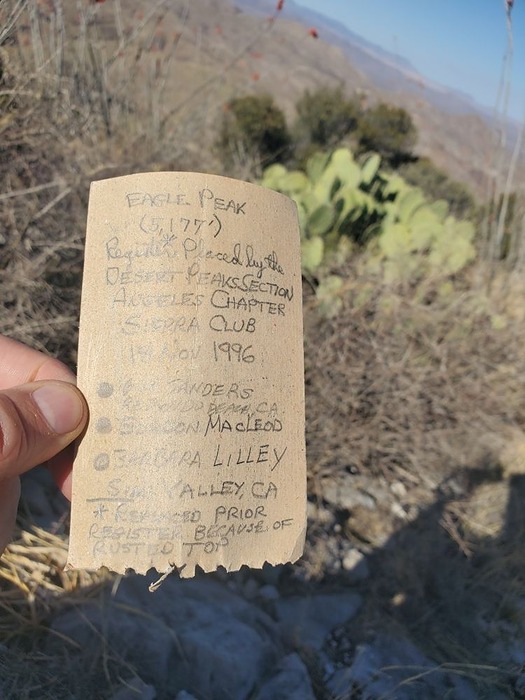 EAGLE PEAK
(5,177')
Register* Placed by the
DESERT PEAKS SECTION
ANGELES CHAPTER
SIERRA CLUB
NOV 1996
SANDERS
BEACH, CA
GORDON MACLEOD
BARBARA LILLEY
VALLEY, CA
* REPLACED PRIOR
REGISTER BECAUSE OF
RUSTED TOP